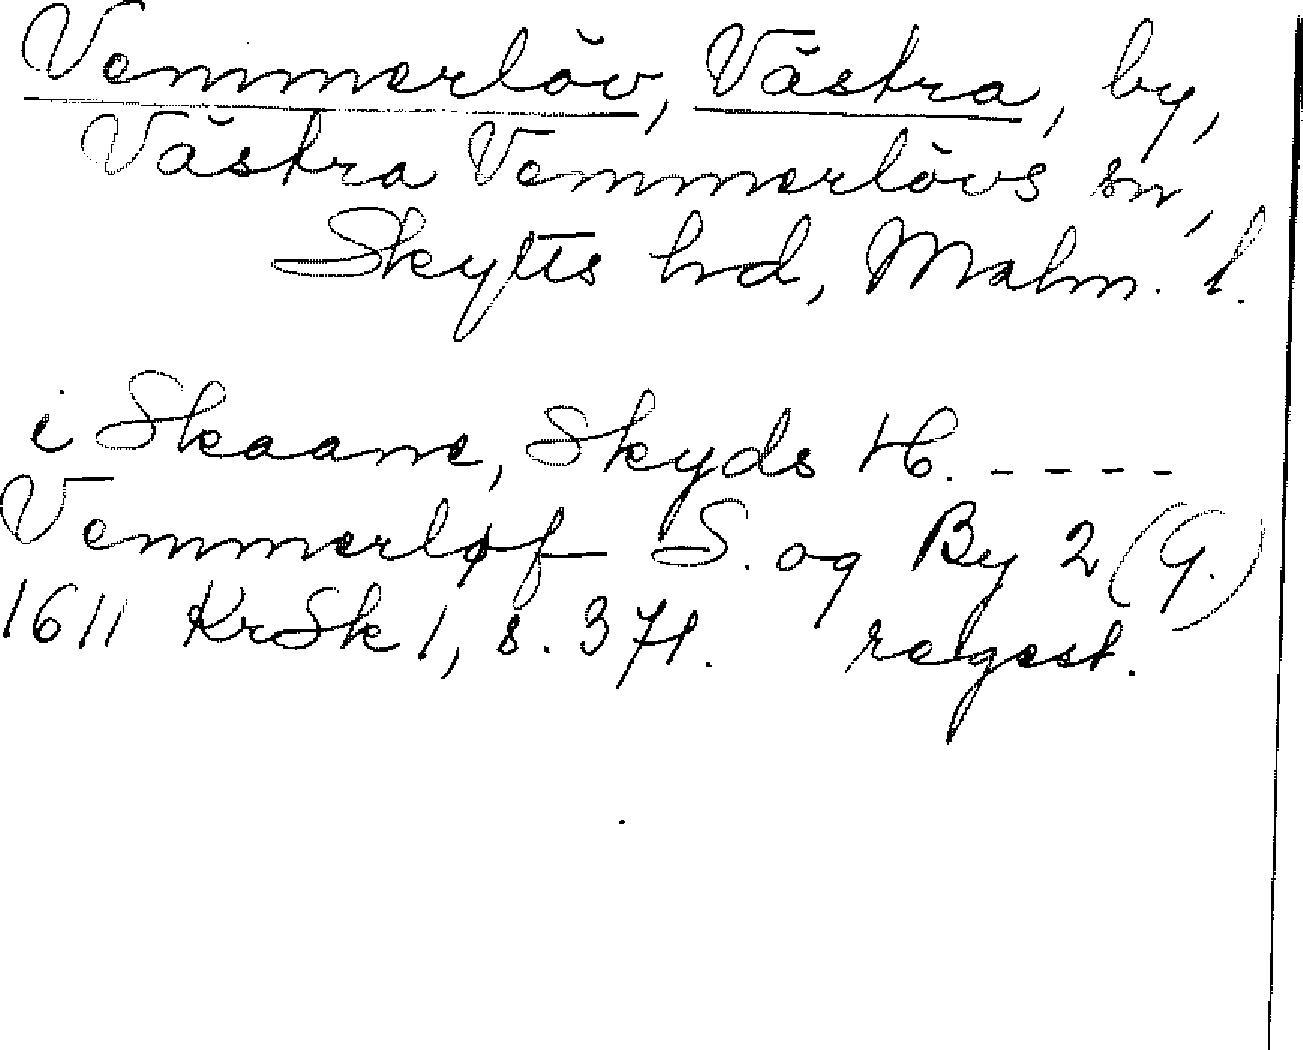 Vemmerlöv, Västra, by,
Västra Vemmerlövs sn,
Skytts hd, Malm. l.
i Skaane, Skyds H. - - - -
Vemmerløf S. og By 2 (G.)
1611 KrSk 1, s. 371. regest.